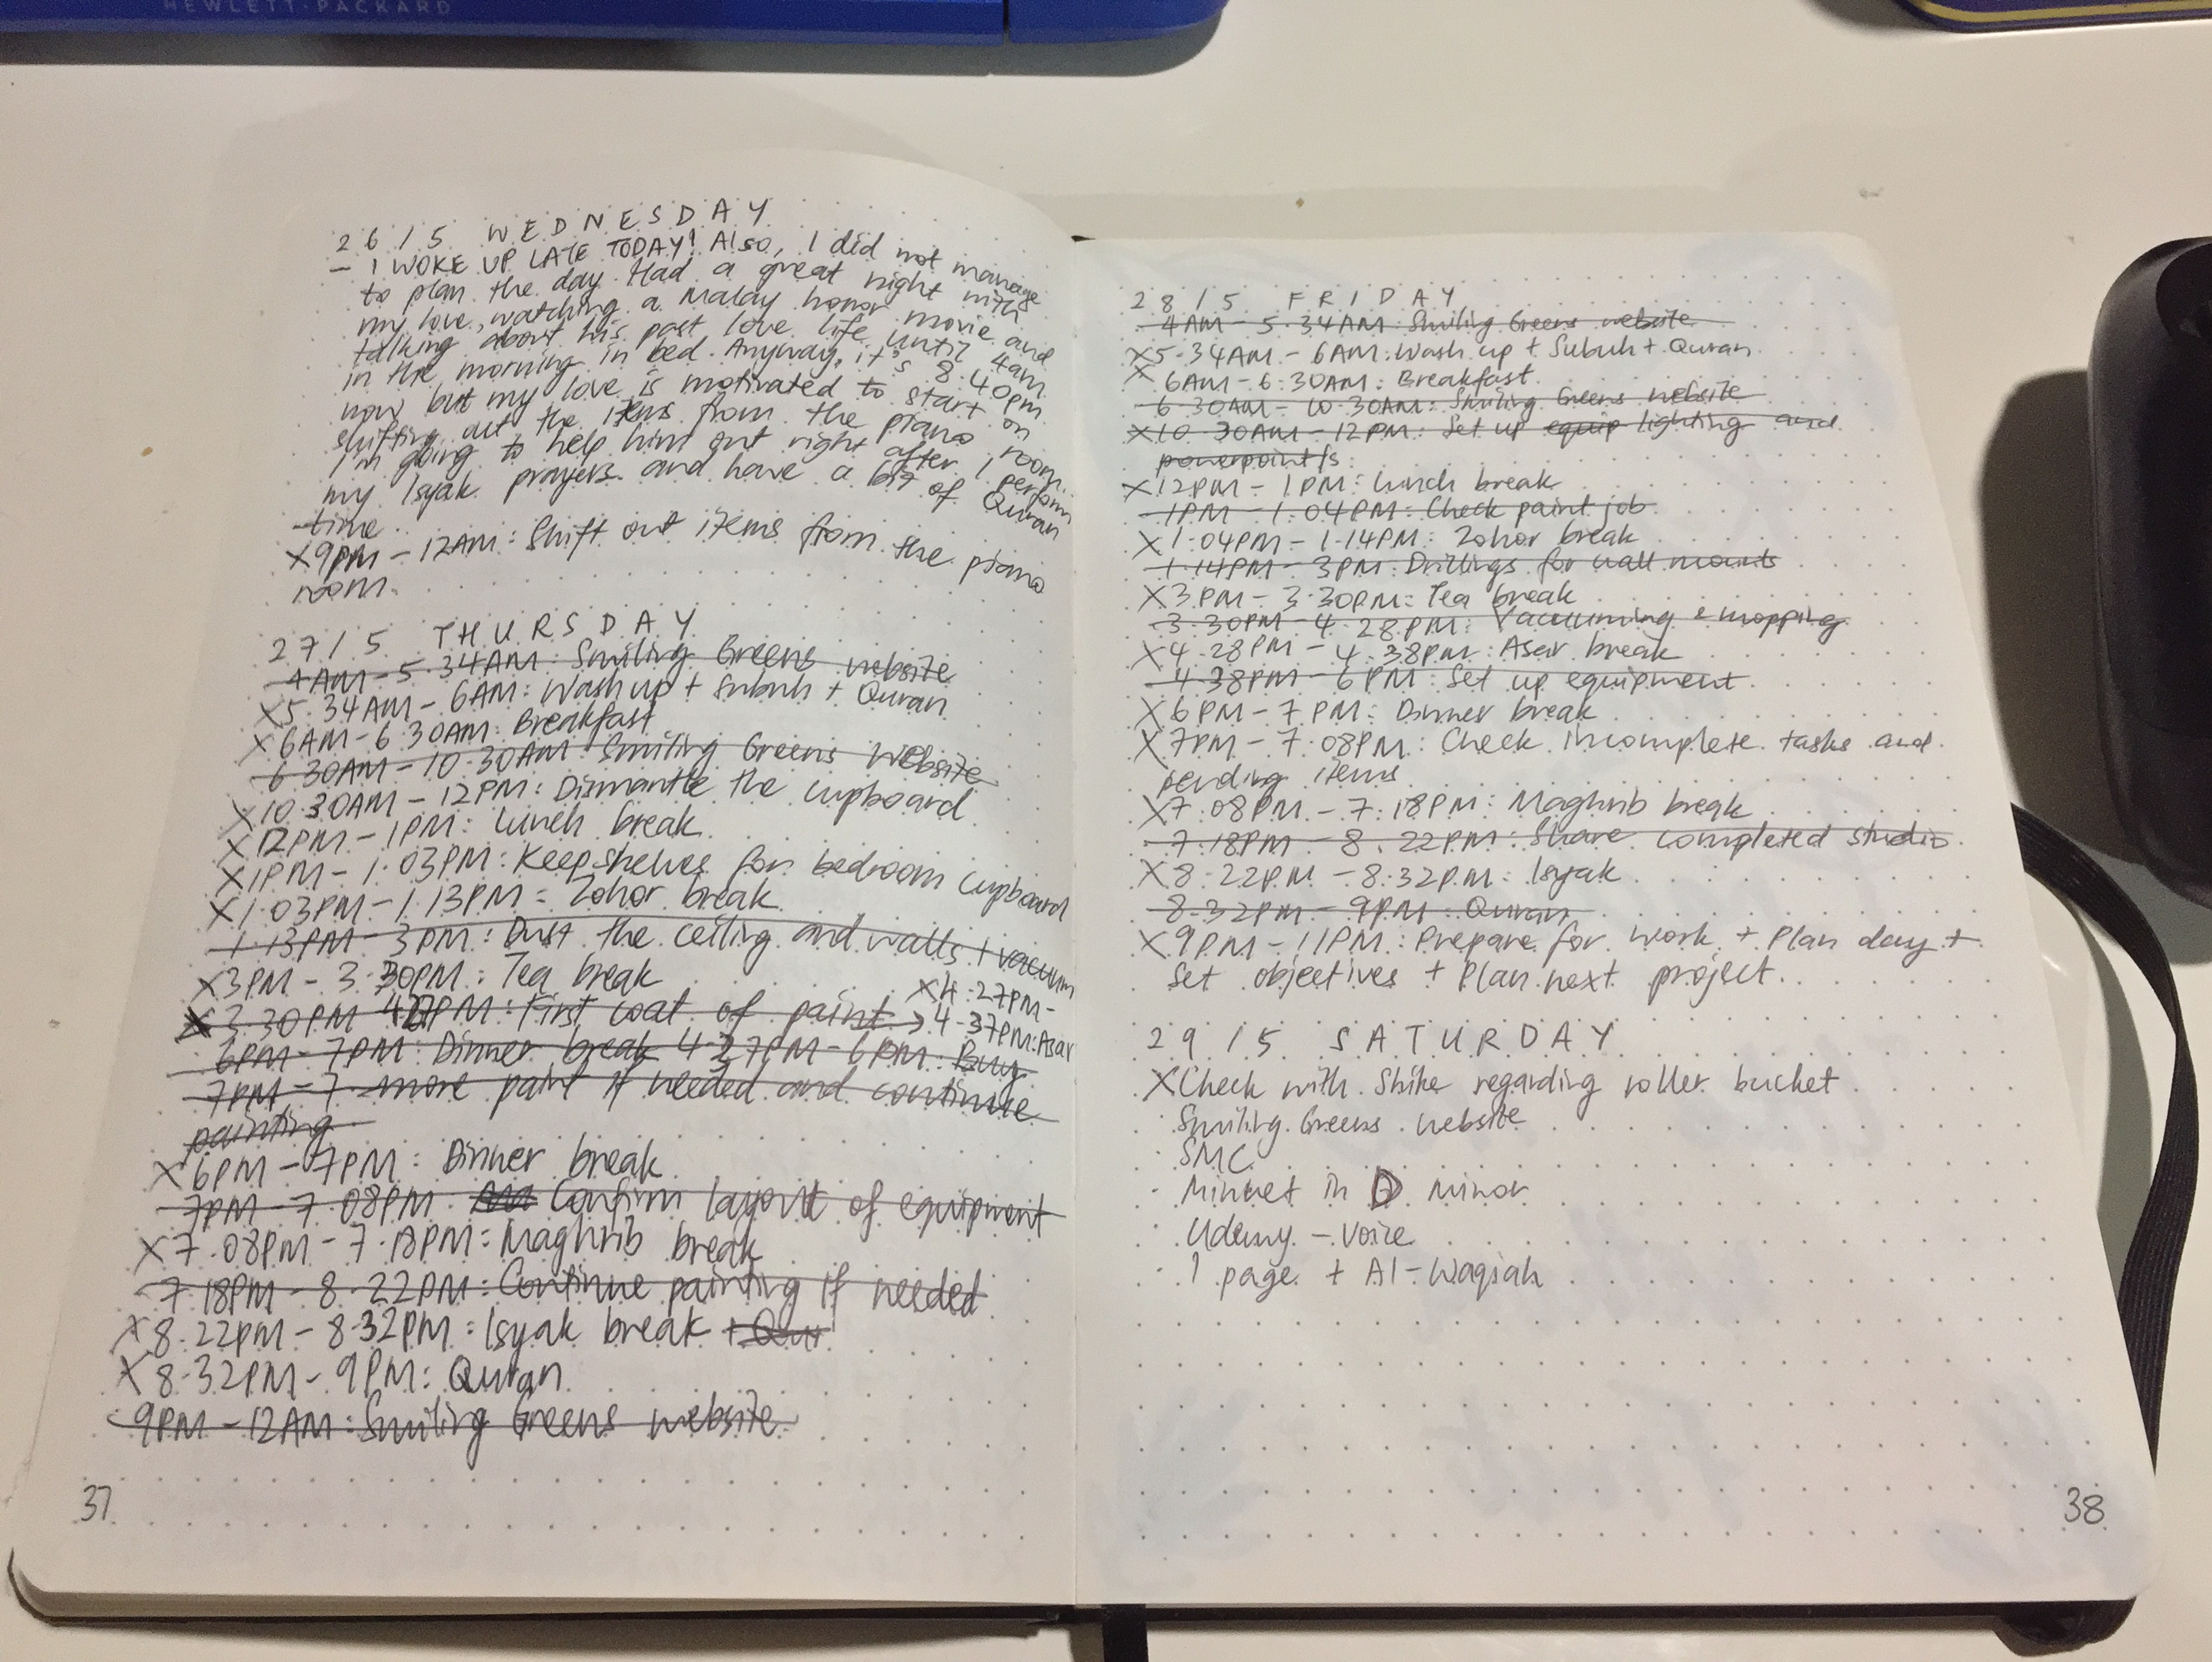 HEWLETT-PACKARD
26/5 WEDNESDAY
- I WOKE UP LATE TODAY! Also, I did not manage
to plan the day. Had a great night with
my love, watching a Malay horror movie and
talking about his past love life until 4am
in the morning in bed. Anyway, it's 8.40pm
now but my love is motivated to start on
shifting out the items from the piano room.
I'm going to help him out right after I perform
my Isyak prayers and have a bit of Quran
time.
X 9PM - 12AM: Shift out items from the piano
room.
27/5 THURSDAY
4AM - 5.34AM: Smiling Greens website
X 5.34AM - 6AM: Wash up + Subuh + Quran
X 6AM - 6.30AM: Breakfast
6.30AM - 10.30AM: Smiling Greens website
X 10.30AM - 12PM: Dismantle the cupboard
X 12PM - 1PM: Lunch break
X 1PM - 1.03PM: Keep shelves for bedroom cupboard
X 1.03PM - 1.13PM: Zohor break
1.13PM - 3PM: Dust the ceiling and walls + vacuum
X 3PM - 3.30PM: Tea break
X 3.30PM 4.27PM: First coat of paint → X 4.27PM - 4.37PM: Asar
6PM - 7PM: Dinner break 4.27PM - 6PM: Buy
7PM - 7. more paint if needed and continue
painting
X 6PM - 7PM: Dinner break
7PM - 7.08PM: Confirm layout of equipment
X 7.08PM - 7.18PM: Maghrib break
7.18PM - 8.22PM: Continue painting if needed
X 8.22PM - 8.32PM: Isyak break + Qur
X 8.32PM - 9PM: Quran
9PM - 12AM: Smiling Greens website
37
28/5 FRIDAY
4AM - 5.34AM: Smiling Greens website
X 5.34AM - 6AM: Wash up + Subuh + Quran
X 6AM - 6.30AM: Breakfast
6.30AM - 10.30AM: Smiling Greens website
X 10.30AM - 12PM: Set up equip lighting and
powerpoint/s
X 12PM - 1PM: Lunch break
1PM - 1.04PM: Check paint job
X 1.04PM - 1.14PM: Zohor break
1.14PM - 3PM: Drillings for wall mounts
X 3PM - 3.30PM: Tea break
3.30PM - 4.28PM: Vacuuming & mopping
X 4.28PM - 4.38PM: Asar break
4.38PM - 6PM: Set up equipment
X 6PM - 7PM: Dinner break
X 7PM - 7.08PM: Check incomplete tasks and
pending items
X 7.08PM - 7.18PM: Maghrib break
7.18PM - 8.22PM: Share completed studio
X 8.22PM - 8.32PM: Isyak
8.32PM - 9PM: Quran
X 9PM - 11PM: Prepare for work + Plan day +
Set objectives + Plan next project.
29/5 SATURDAY
X Check with Shike regarding roller bucket
· Smiling Greens website
· SMC
· Minuet in D Minor
· Udemy - Voice
· 1 page + Al-Waqiah
38